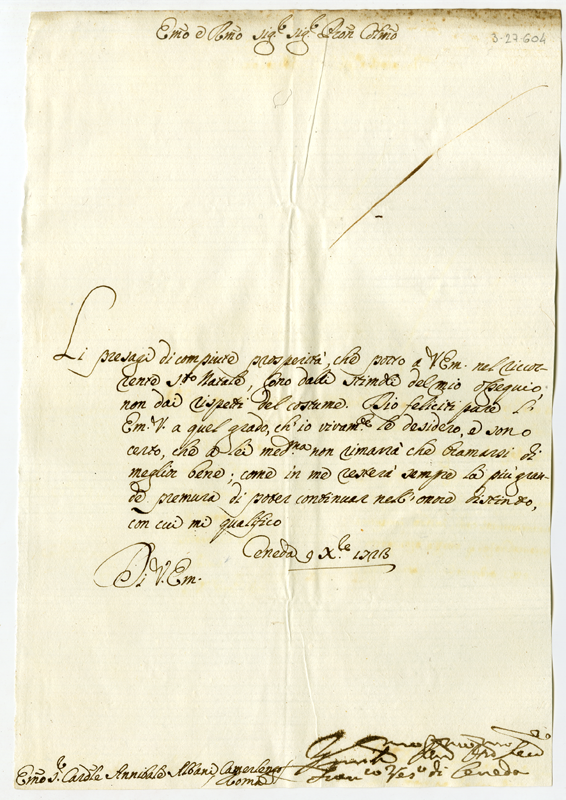 Emo e Rmo Sigr. Sigr. Pron Colmo
3-27-604
Li presagi di compiute prosperità, che porto a V Em. nel ricor-
rente Sto Natale, sono dalle stimole del mio ossequio,
non dai rispetti del costume. Dio feliciti pure l'
Em. V. a quel grado, ch'io vivamte. lo desidero, e sono
certo, che a lei medma non rimarrà che bramarsi di
meglior bene; come in me resterà sempre la più gran-
de premura di poter continuar nell'onore distinto,
con cui mi qualifico
Ceneda 9 Xbre 1723
Di V. Em.
Emo Sr. Cardle Annibale Albani Camerlengo
Roma
Franco Veso di Ceneda